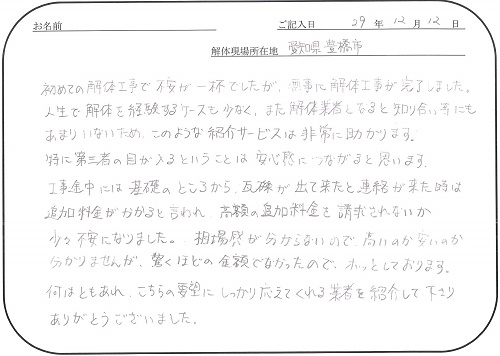 お名前 ご記入日 29 年 12 月 12 日
解体現場所在地 愛知県豊橋市
初めての解体工事で不安が一杯でしたが、無事に解体工事が完了しました。
人生で解体を経験するケースも少なく、また解体業者となると知り合い等にも
あまりいないため、このような紹介サービスは非常に助かります。
特に第三者の目が入るということは安心感につながると思います。
工事途中には基礎のところから、瓦礫が出て来たと連絡が来た時は
追加料金がかかると言われ、高額の追加料金を請求されないか
少々不安になりました。相場感が分からないので、高いのか安いのか
分かりませんが、驚くほどの金額でなかったので、ホッとしております。
何はともあれ、こちらの要望にしっかり応えてくれる業者を紹介して下さり
ありがとうございました。